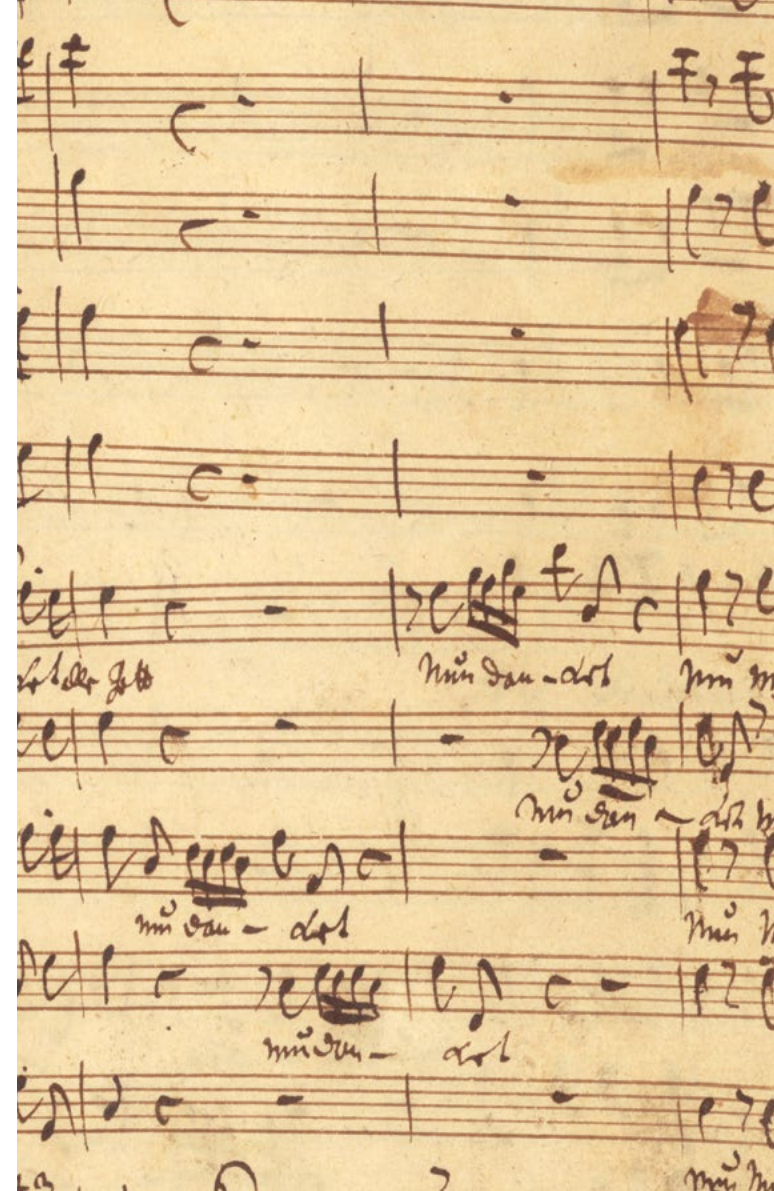 ket alle Gott Nun dan-ket Nun
nun dan - ket
nun dan - ket Nun
nun dan - ket
Nun